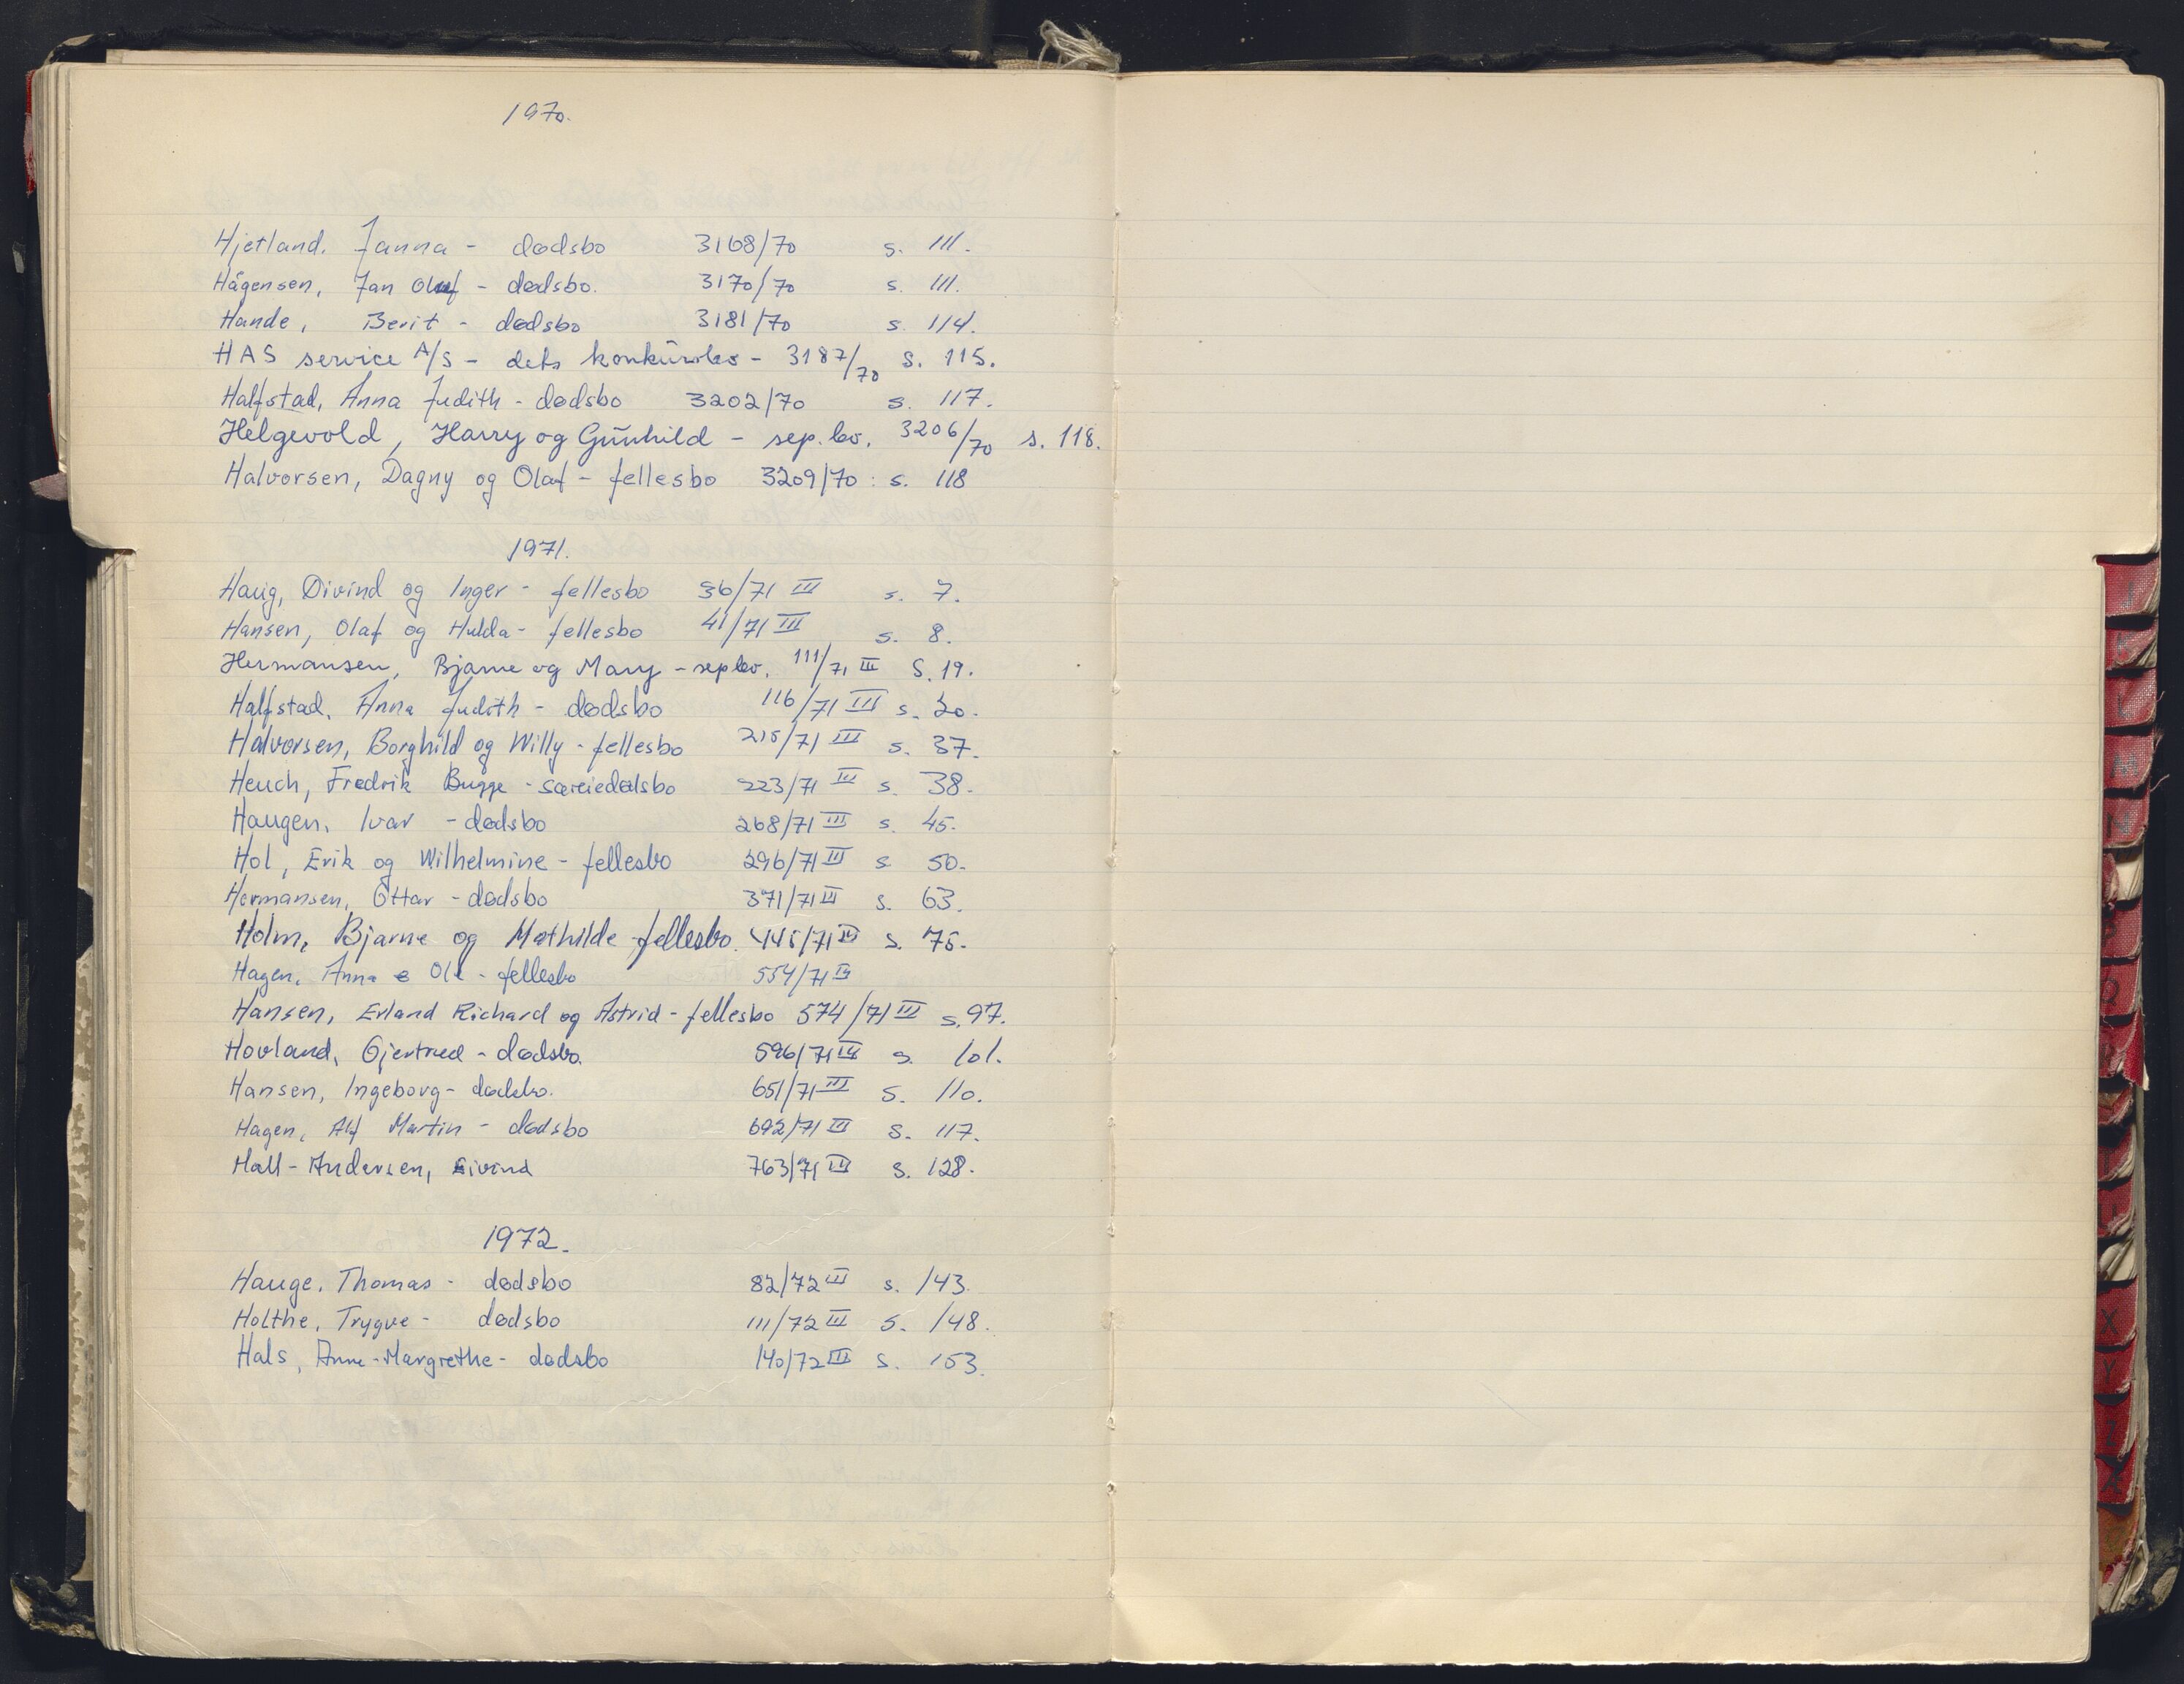 1970.
Hjetland. Janna - dødsbo 3168/70 s. 111.
Hågensen, Jan Oluf - dødsbo. 3170/70 s. 111.
Hande, Berit - dødsbo 3181/70 s. 114.
HAS service A/S - dets konkursbo - 3187/70 s. 115.
Halfstad, Anna Judith - dødsbo 3202/70 s. 117.
Helgevold, Harry og Gunhild - sep.bo. 3206/70 s. 118.
Halvorsen, Dagny og Olaf - fellesbo 3209/70 : s. 118
1971.
Haug, Øivind og Inger - fellesbo 36/71 III s. 7.
Hansen, Olaf og Hulda - fellesbo 41/71 III s. 8.
Hermansen, Bjarne og Mary - sep bo. 111/71 III S. 19.
Halfstad, Anna Judith - dødsbo 116/71 III s. 20.
Halvorsen, Borghild og Willy - fellesbo 215/71 III s. 37.
Heuch, Fredrik Bugge - særeiedødsbo 223/71 III s. 38.
Haugen, Ivar - dødsbo 268/71 III s. 45.
Hol, Erik og Wilhelmine - fellesbo 296/71 III s 50.
Hermansen, Ottar - dødsbo 371/71 III s. 63.
Holm, Bjarne og Mathilde - fellesbo. 445/71 III s. 75.
Hagen, Anna & Ole - fellesbo 554/71 III
Hansen, Erland Richard og Astrid - fellesbo 574/71 III s. 97.
Hovland, Gjertrud - dødsbo. 596/71 III s. 101.
Hansen, Ingeborg - dødsbo. 651/71 III s. 110.
Hagen, Alf Martin - dødsbo 692/71 III s. 117.
Hall-Andersen, Eivind 763/71 III s. 128.
1972.
Hauge, Thomas - dødsbo 82/72 III s. 143.
Holthe, Trygve - dødsbo 111/72 III s. 148.
Hals, Anne-Margrethe - dødsbo 140/72 III s. 153.